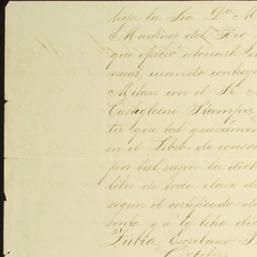 hija la Sra. Da. M
Martinez del Rio
que ofició
nual, cuando contrajo
Milán con el Sr.
Castiglioni Stampa
ter que tal gravámen
en el Libro de censo
por tal razon la dic
libre de toda clase d
segun el certificado d
senta y a la letra di
Rubia, Escribano